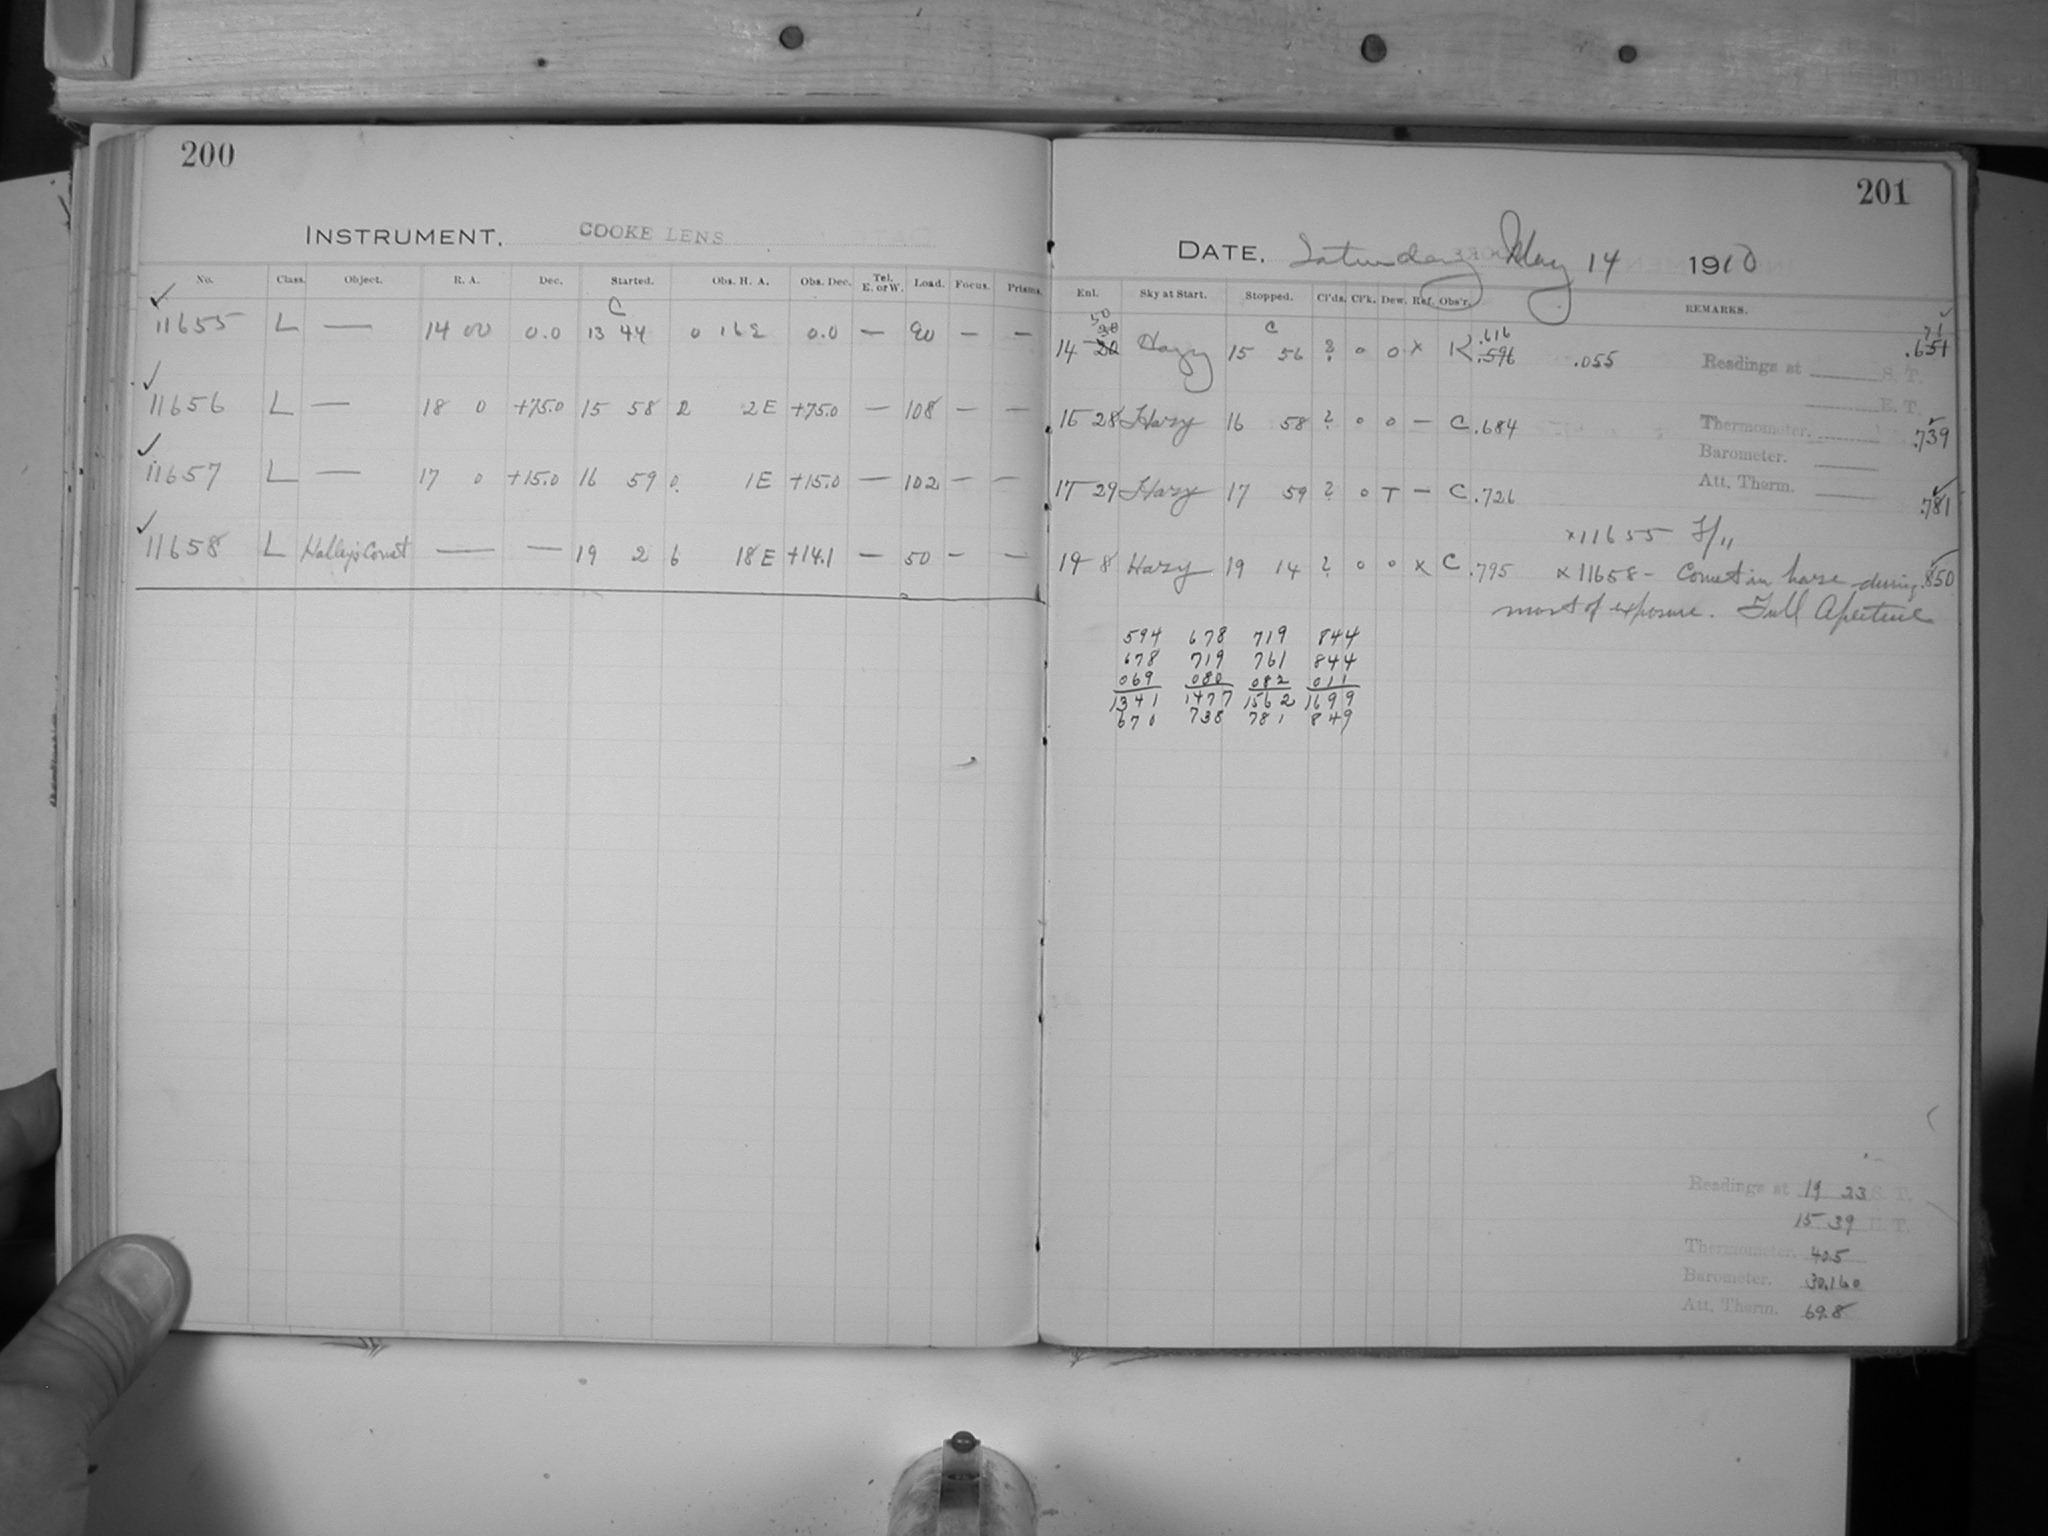 200
INSTRUMENT. COOKE LENS
No. Class. Object. R. A. Dec. Started. Obs. H. A. Obs. Dec. Tel. E. or W. Load. Focus. Prisms.
C
11655 L — 14 00 0.0 13 44 0 16 E 0.0 — 90 — —
11656 L — 18 0 +75.0 15 58 2 2E +75.0 — 108 — —
11657 L — 17 0 +15.0 16 59 0. 1E +15.0 — 102 — —
11658 L Halley's Comet — — 19 2 6 18E +14.1 — 50 — —
201
DATE. Saturday May 14 1910
Enl. Sky at Start. Stopped. Cl'ds. Cl'k. Dew. Ref. Obs'r. REMARKS.
50 C .616 71
14 20 Hazy 15 56 ? 0 0 x K .596 .055 .651
Readings at S. T.
E. T.
15 28 Hazy 16 58 ? 0 0 — C .684 Thermometer. .739
Barometer.
17 29 Hazy 17 59 ? 0 T — C .726 Att. Therm. .781
x11655 F/11
19 8 Hazy 19 14 ? 0 0 x C .795 x11658 - Comet in haze during .850
most of exposure. Full Aperture
594 678 719 844
678 719 761 844
069 080 082 011
1341 1477 1562 1699
670 738 781 849
Readings at 19 23 S. T.
15 39 E. T.
Thermometer. 40.5
Barometer. 30.160
Att. Therm. 69.8